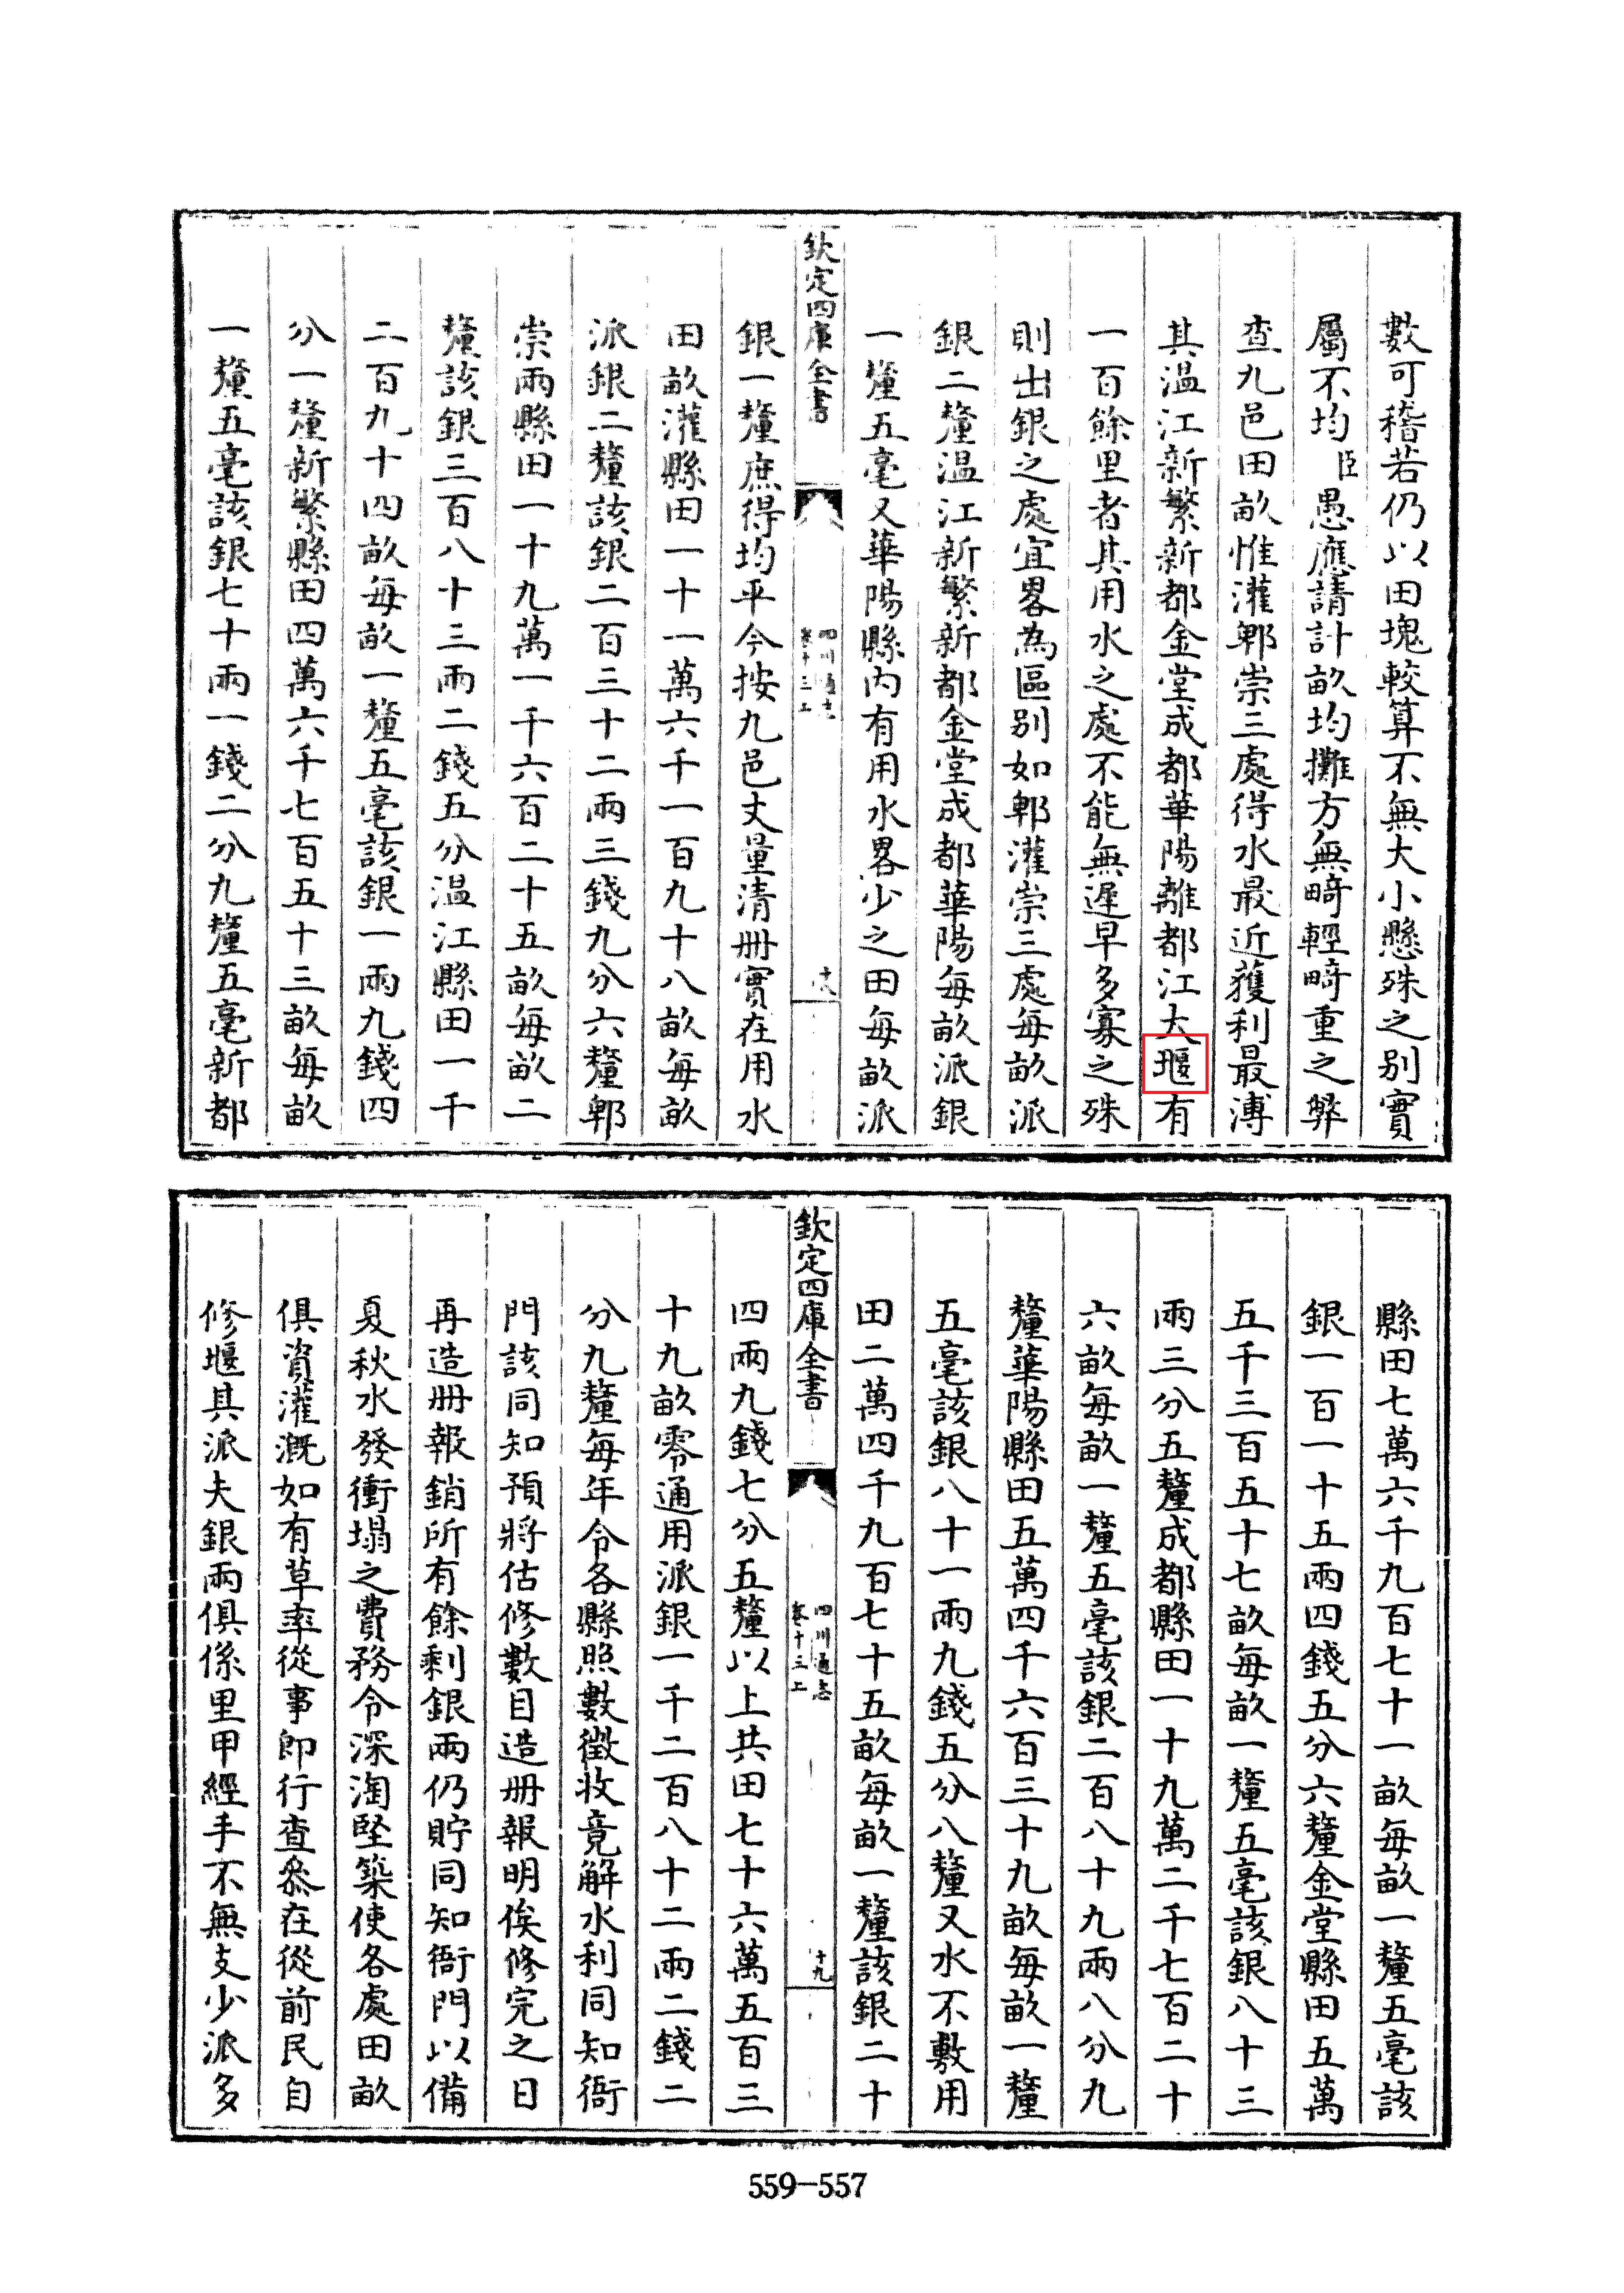 數可稽若仍以田塊較算不無大小懸殊之别實
屬不均臣愚應請計畝均攤方無畸輕畸重之弊
查九邑田畝惟灌郫崇三處得水最近獲利最溥
其温江新繁新都金堂成都華陽離都江大堰有
一百餘里者其用水之處不能無遲早多寡之殊
則出銀之處宜畧為區别如郫灌崇三處每畝派
銀二釐温江新繁新都金堂成都華陽每畝派銀
一釐五毫又華陽縣内有用水畧少之田每畝派
欽定四庫全書
四川通志
卷十三上
十八
銀一釐庶得均平今按九邑丈量清册實在用水
田畝灌縣田一十一萬六千一百九十八畝每畝
派銀二釐該銀二百三十二兩三錢九分六釐郫
崇兩縣田一十九萬一千六百二十五畝每畝二
釐該銀三百八十三兩二錢五分温江縣田一千
二百九十四畝每畝一釐五毫該銀一兩九錢四
分一釐新繁縣田四萬六千七百五十三畝每畝
一釐五毫該銀七十兩一錢二分九釐五毫新都
縣田七萬六千九百七十一畝每畝一釐五毫該
銀一百一十五兩四錢五分六釐金堂縣田五萬
五千三百五十七畝每畝一釐五毫該銀八十三
兩三分五釐成都縣田一十九萬二千七百二十
六畝每畝一釐五毫該銀二百八十九兩八分九
釐華陽縣田五萬四千六百三十九畝每畝一釐
五毫該銀八十一兩九錢五分八釐又水不敷用
田二萬四千九百七十五畝每畝一釐該銀二十
欽定四庫全書
四川通志
卷十三上
十九
四兩九錢七分五釐以上共田七十六萬五百三
十九畝零通用派銀一千二百八十二兩二錢二
分九釐每年令各縣照數徵收竟解水利同知衙
門該同知預將估修數目造册報明俟修完之日
再造册報銷所有餘剩銀兩仍貯同知衙門以備
夏秋水發衝塌之費務令深淘堅築使各處田畝
俱資灌溉如有草率從事即行查叅在從前民自
修堰其派夫銀兩俱係里甲經手不無支少派多
559-557